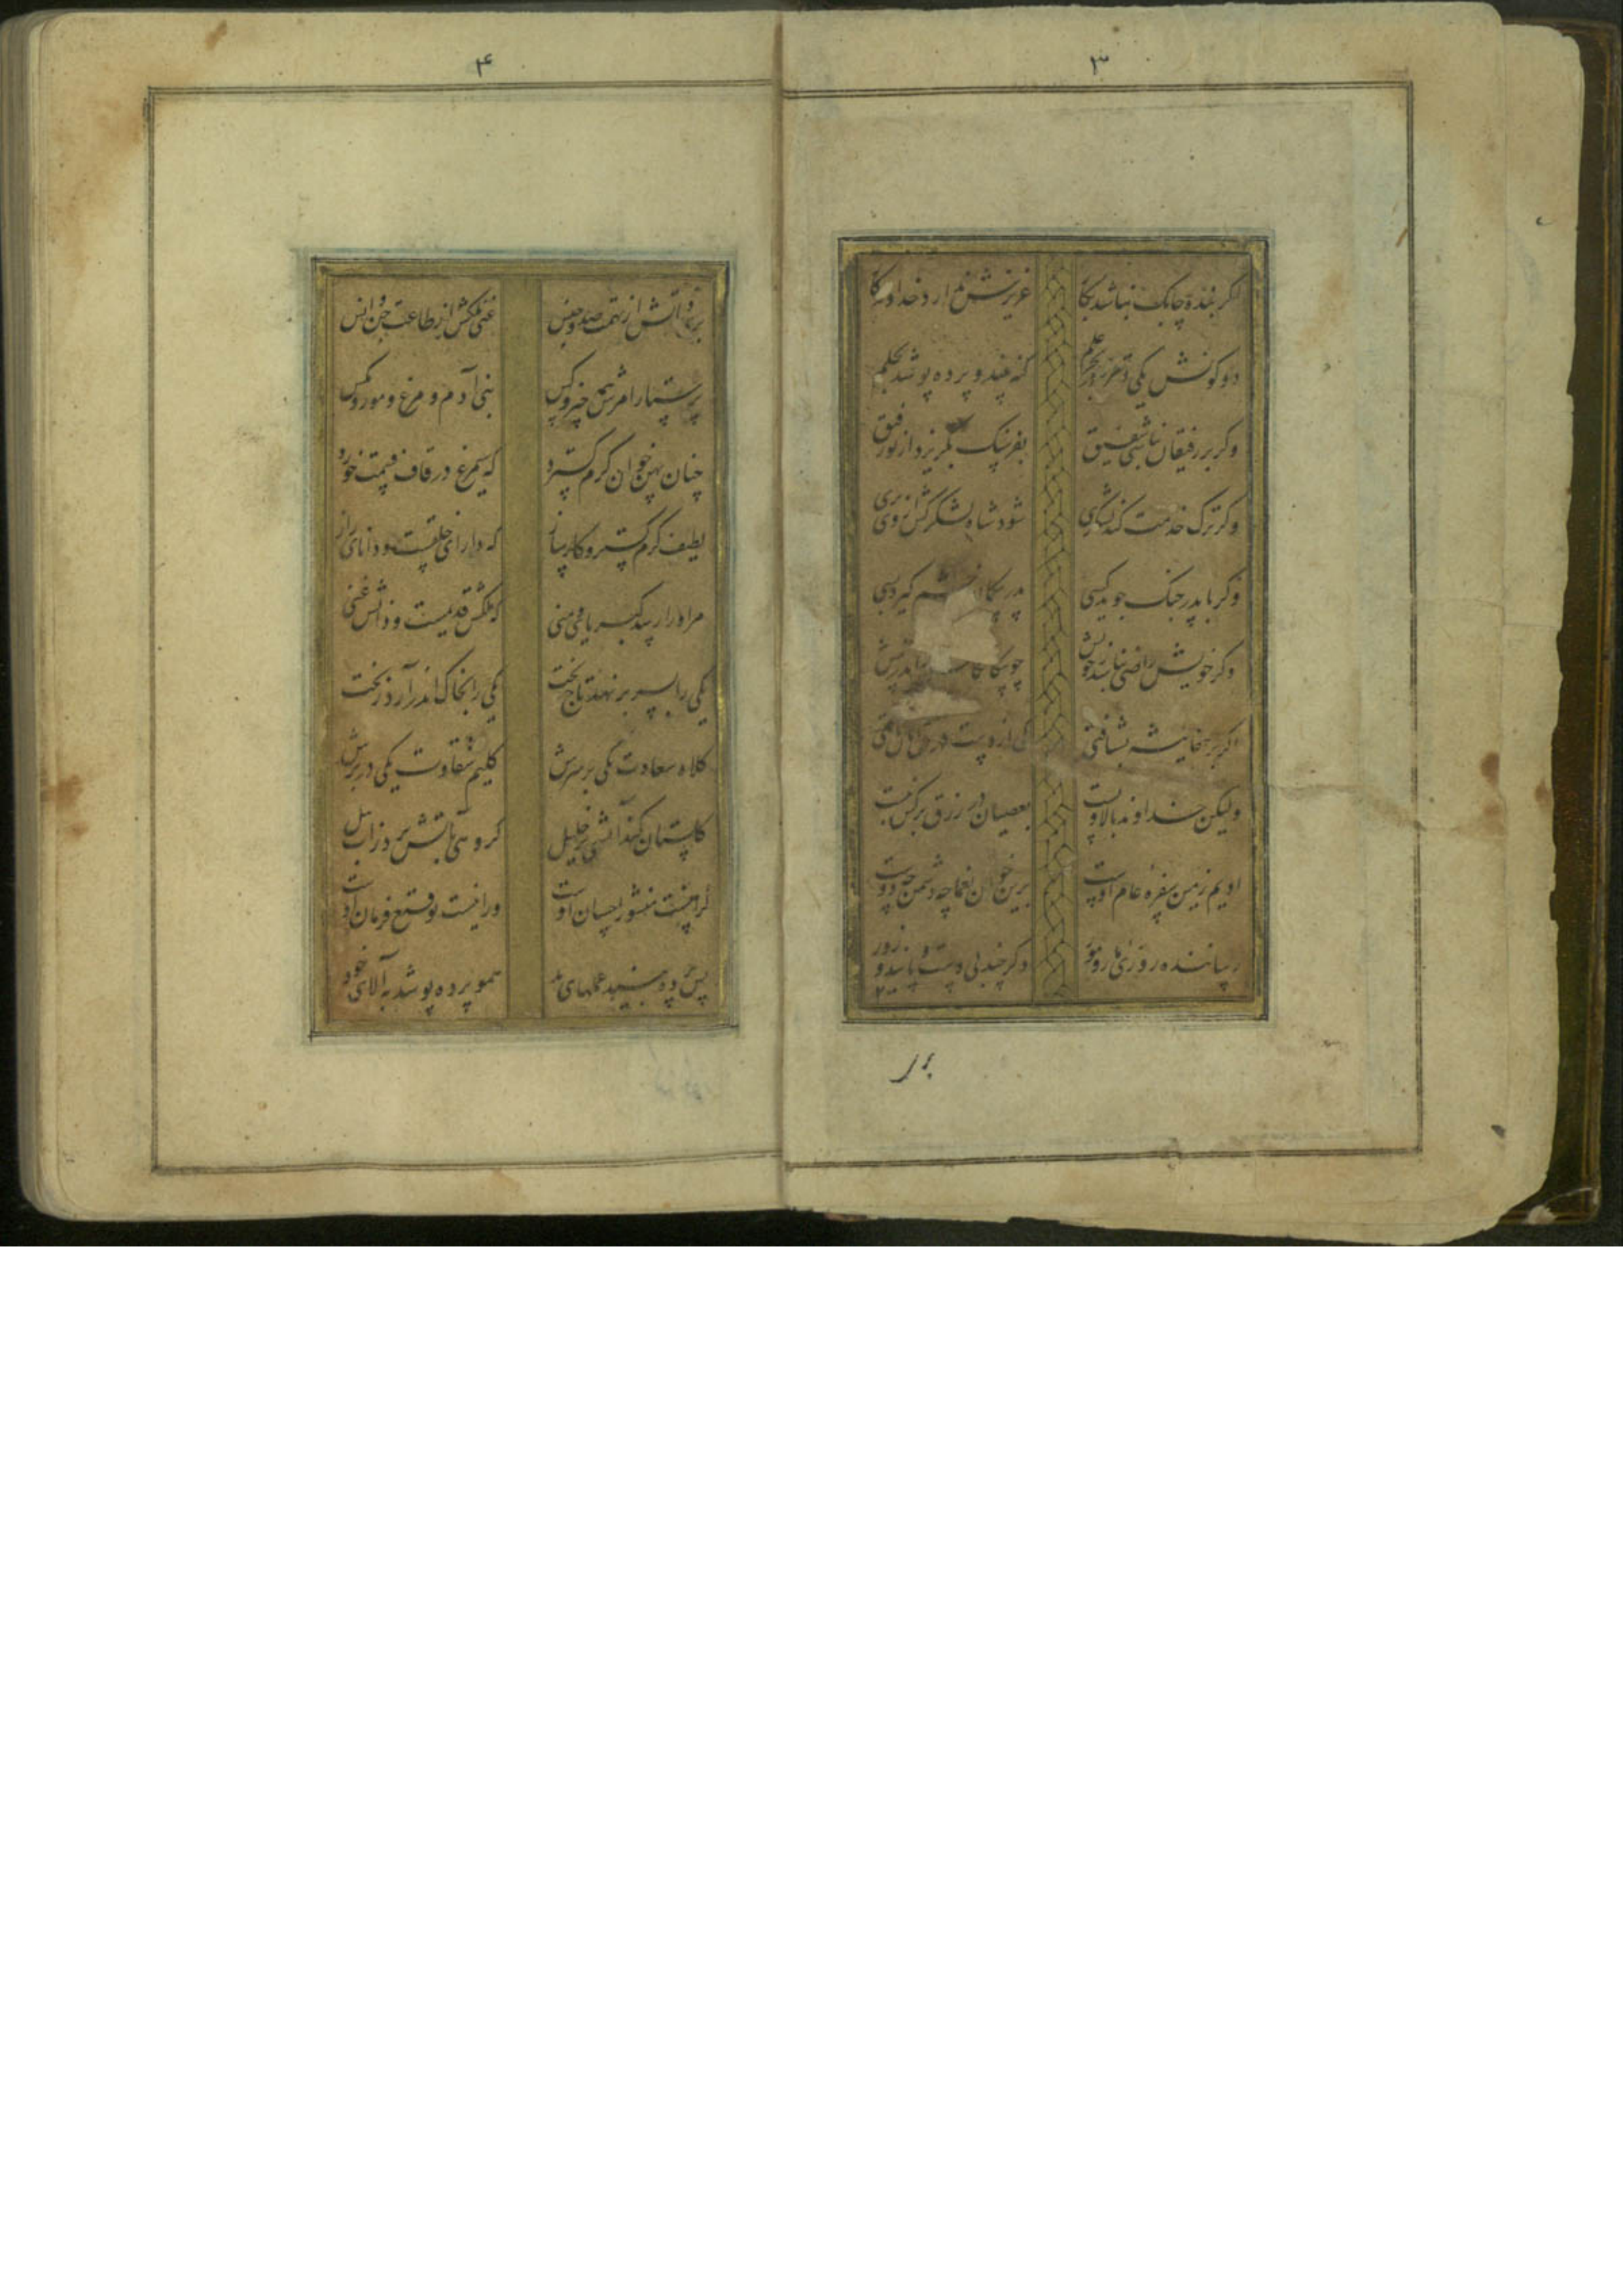 ۳
اکر بنده چابک نباشد بکار
عزیزش ندارد خداوندکار
دو کونش یکی قطره در بحر علم
کنه بیند و پرده پوشد بحلم
وکر بر رفیقان نباشی شفیق
بفرسنک بکریزد از تو رفیق
وکر ترک خدمت کند لشکری
شود شاه لشکرکش از وی بری
وکر با پدر جنک جوید کسی
پدر خشم کیرد بسی
وکر خویش راضی نباشد ز خویش
چو
اکر بر جفاپیشه بشتافتی
کی از دست
ولیکن خداوند بالا و پست
بعصیان در رزق بر کس نبست
ادیم زمین سفره عام اوست
برین خوان یغما چه دشمن چه دوست
رساننده روزی مار و مور
وکر چند بی دست و پایند و زور
بر
۴
بری ذاتش از تهمت ضد و جنس
غنی ملکش از طاعت جن و انس
پرستار امرش همه چیز و کس
بنی آدم و مرغ و مور و مکس
چنان پهن خوان کرم کسترد
که سیمرغ در قاف قسمت خورد
لطیف کرم کستر و کارساز
که دارای خلقست و دانای راز
مر او را رسد کبریا و منی
که ملکش قدیمست و ذاتش غنی
یکی را بسر بر نهد تاج بخت
یکی را بخاک اندر آرد ز تخت
کلاه سعادت یکی بر سرش
کلیم شقاوت یکی در برش
کلستان کند آتشی بر خلیل
کروهی بآتش برد ز آب نیل
کر آنست منشور احسان اوست
ور اینست توقیع فرمان اوست
پس پرده بیند عملهای بد
همو پرده پوشد بآلای خود